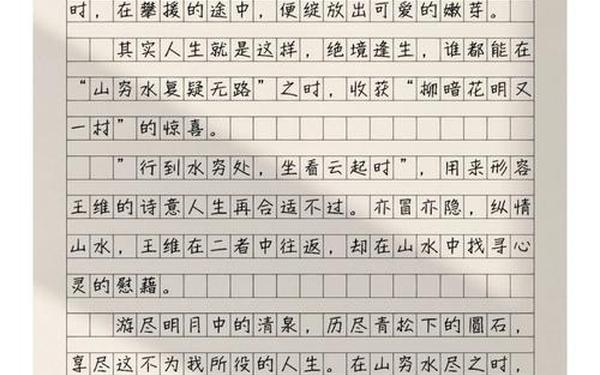 时，在攀援的途中，便绽放出可爱的嫩芽。
其实人生就是这样，绝境逢生，谁都能在
“山穷水复疑无路”之时，收获“柳暗花明又
一村”的惊喜。
”行到水穷处，坐看云起时”，用来形容
王维的诗意人生再合适不过。亦冒亦隐，纵情
山水，王维在二者中往返，却在山水中找寻心
灵的慰藉。
游尽明月中的清泉，历尽青松下的圆石，
享尽这不为我所役的人生。在山穷水尽之时，